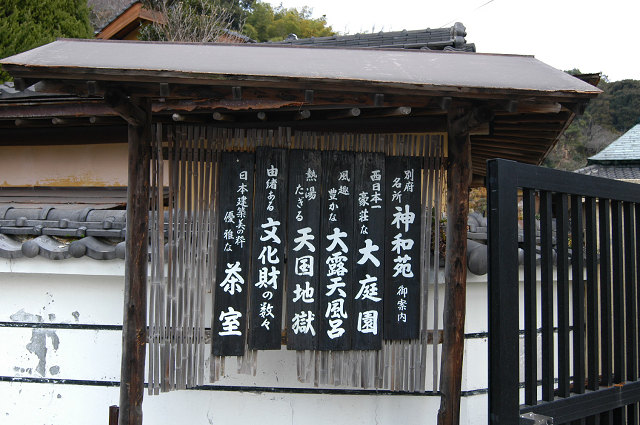 別府名所 神和苑 御案内
西日本一豪荘な 大庭園
風趣豊かな 大露天風呂
熱湯たぎる 天国地獄
由緒ある 文化財の数々
日本建築美の粋 優雅な 茶室